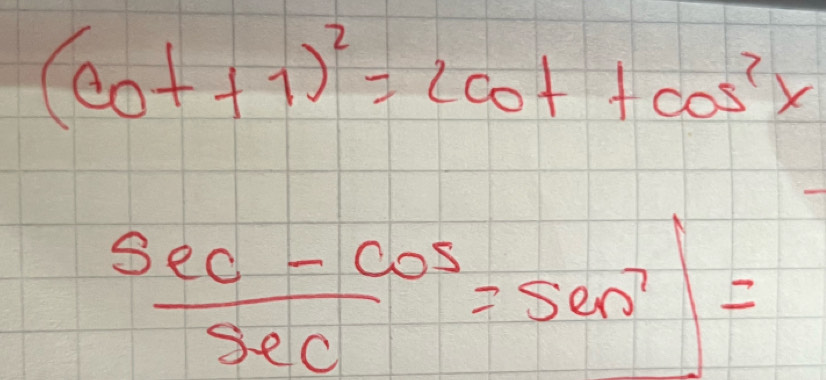 (cot + 1)² = 2cot + cos²x
sec - cos / sec = sen² | =